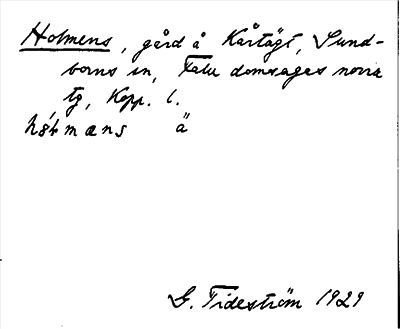 Holmens, gård å Kårtägt, Sund-
borns sn, Falu domsagas norra
tg, Kopp. l.
mæns ä
G. Tideström 1929